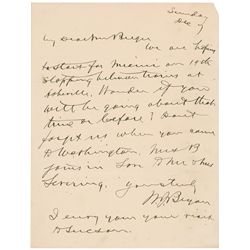 Sunday
Dec 9
My Dear Mr Berger
We are hoping
to start for Miami on 19th
stopping between trains at
Asheville. Wonder if you
will be going about that
time or before? Don't
forget us when you come
to Washington. Mrs B
joins in love to Mr & Mrs
Yours truly
W J Bryan
I enjoy your visit
to Tucson.